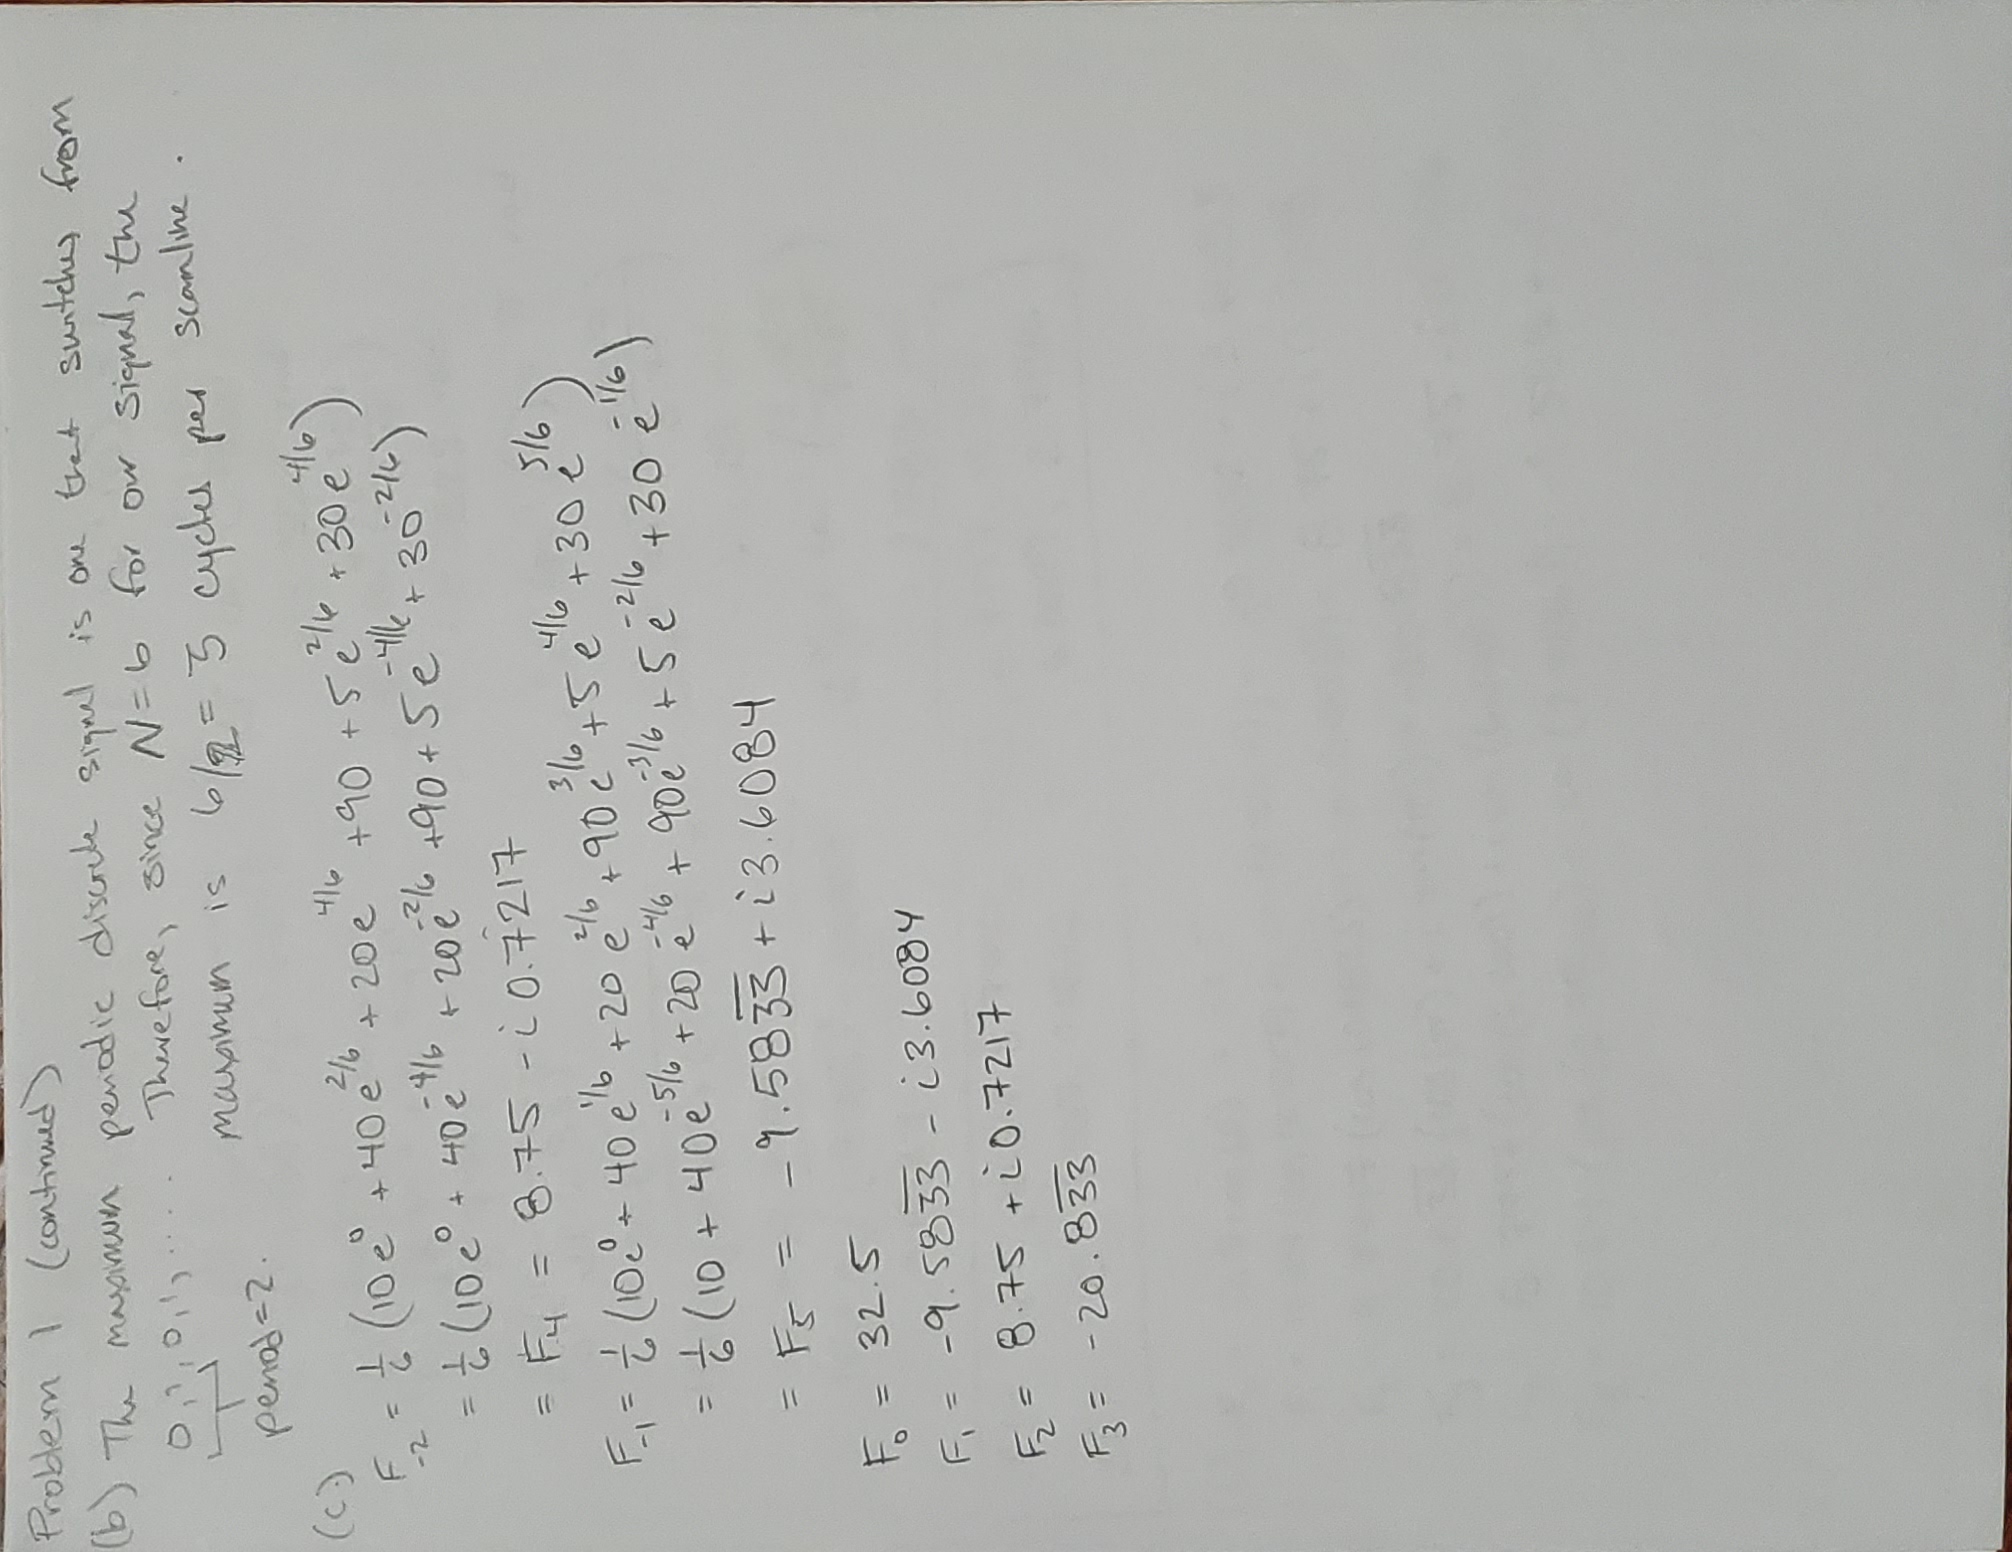 Problem 1 (continued)
(b) The maximum periodic discrete signal is one that switches from
0,1,0,1,.... Therefore, since N=6 for our signal, the
maximum is 6/2 = 3 cycles per scanline.
period=2.
(c.)
F₋₂ = 1/6 (10e^0 + 40e^{2/6} + 20e^{4/6} + 90 + 5e^{2/6} + 30e^{4/6})
= 1/6 (10e^0 + 40e^{-4/6} + 20e^{-2/6} + 90 + 5e^{-4/6} + 30^{-2/6})
= F₄ = 8.75 - i0.7217
F₋₁ = 1/6 (10e^0 + 40e^{1/6} + 20e^{2/6} + 90e^{3/6} + 5e^{4/6} + 30e^{5/6})
= 1/6 (10 + 40e^{-5/6} + 20e^{-4/6} + 90e^{-3/6} + 5e^{-2/6} + 30e^{-1/6})
= F₅ = -9.583̅3̅ + i3.6084
F₀ = 32.5
F₁ = -9.583̅3̅ - i3.6084
F₂ = 8.75 + i0.7217
F₃ = -20.83̅3̅